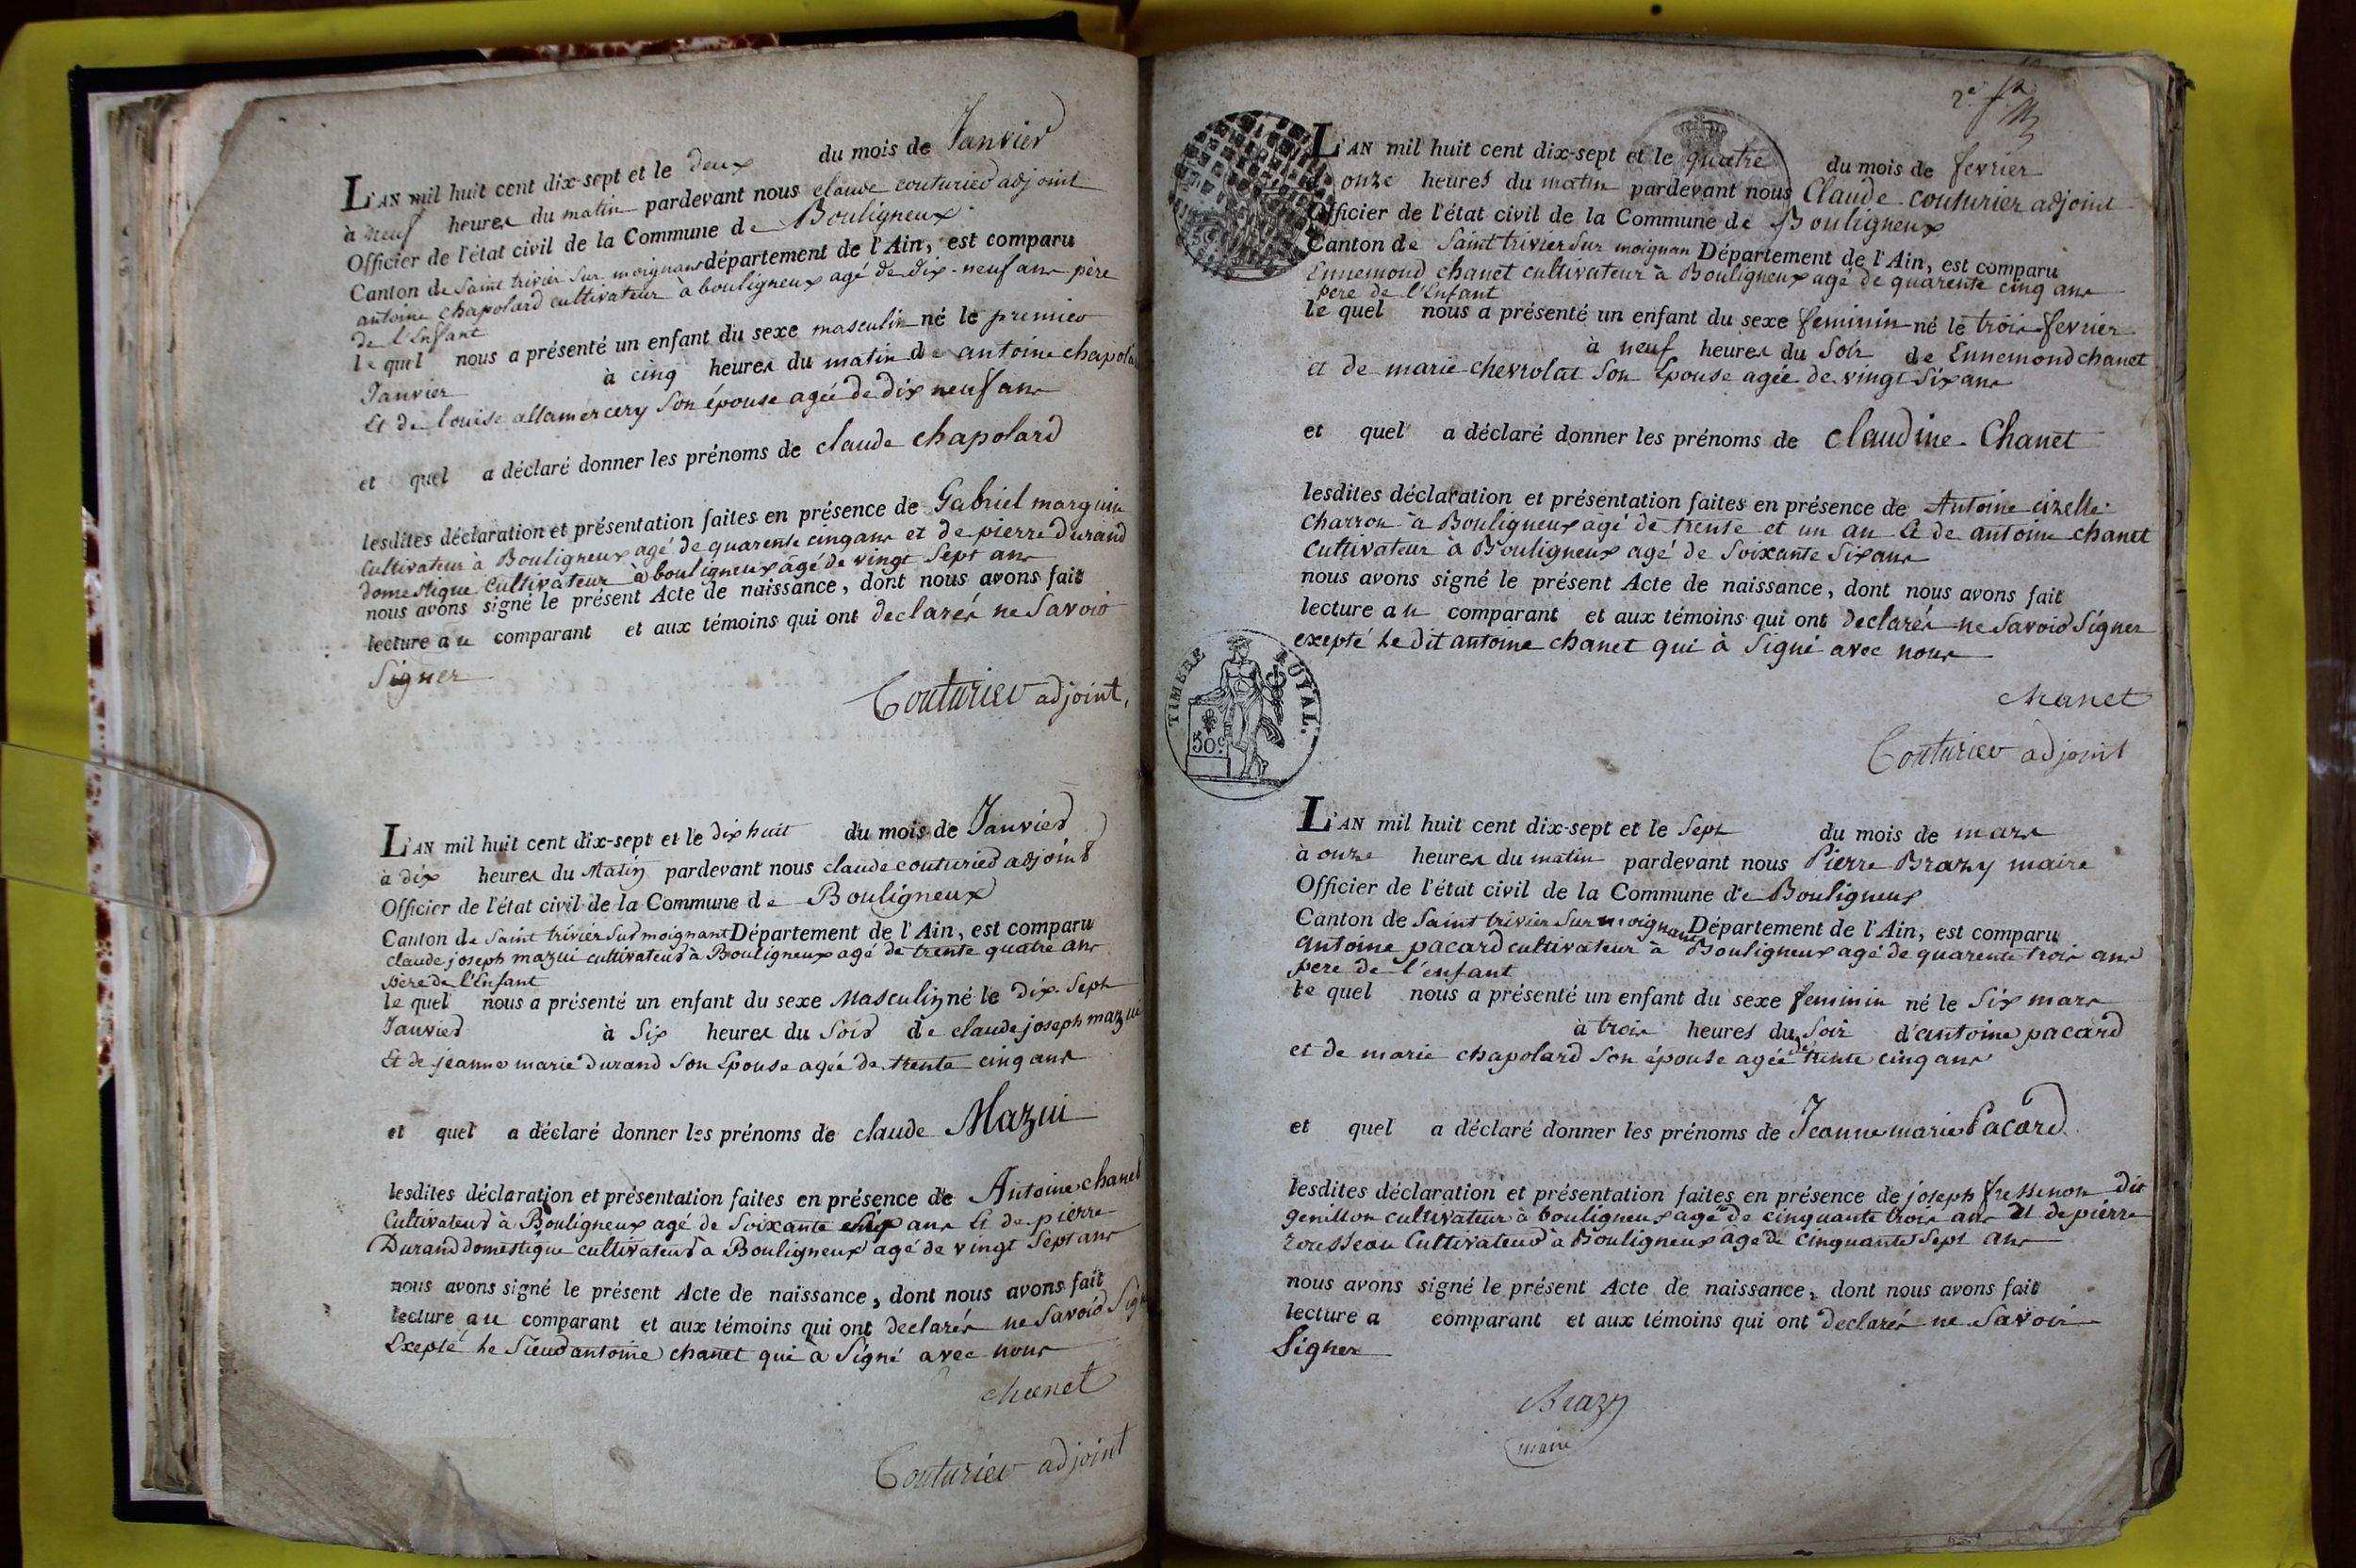 L'AN mil huit cent dix-sept et le deux du mois de Janvier
à neuf heures du matin pardevant nous claude couturier adjoint
Officier de l'état civil de la Commune de Bouligneux
Canton de Saint trivier Sur moignans département de l'Ain, est comparu
antoine chapolard cultivateur à bouligneux agé de dix-neuf ans père
de l'Enfant
lequel nous a présenté un enfant du sexe masculin né le premier
Janvier à cinq heures du matin de antoine chapolard
Et de louise allamercery Son épouse agée de dix neuf ans
et quel a déclaré donner les prénoms de claude chapolard
lesdites déclaration et présentation faites en présence de Gabriel marguin
Cultivateur à Bouligneux agé de quarente cinq ans et de pierre Durand
domestique Cultivateur à bouligneux âgé de vingt Sept ans
nous avons signé le présent Acte de naissance, dont nous avons fait
lecture au comparant et aux témoins qui ont declarés ne Savoir
Signer
Couturier adjoint,
L'AN mil huit cent dix-sept et le dix huit du mois de Janvier
à dix heures du Matin pardevant nous claude couturier adjoint
Officier de l'état civil de la Commune de Bouligneux
Canton de Saint trivier Sur moignant Département de l'Ain, est comparu
claude joseph mazui cultivateur à Bouligneux agé de trente quatre ans
père de l'Enfant
lequel nous a présenté un enfant du sexe Masculin né le dix-Sept
Janvier à Six heures du Soir de claude joseph mazui
Et de jeanne marie Durand Son Epouse agée de trente cinq ans
et quel a déclaré donner les prénoms de claude Mazui
lesdites déclaration et présentation faites en présence de Antoine chanet
Cultivateur à Bouligneux agé de Soixante Six ans Et de pierre
Durand domestique cultivateur à Bouligneux agé de vingt Sept ans
nous avons signé le présent Acte de naissance, dont nous avons fait
lecture au comparant et aux témoins qui ont declarés ne Savoir Sign
Exepté Le Sieur antoine chanet qui à Signé avec nous
chanet
Couturier adjoint
2e
L'AN mil huit cent dix-sept et le quatre du mois de fevrier
à onze heures du matin pardevant nous Claude couturier adjoint
Officier de l'état civil de la Commune de Bouligneux
Canton de Saint trivier Sur moignan Département de l'Ain, est comparu
Ennemond chanet cultivateur à Bouligneux agé de quarente cinq ans
pere de l'Enfant
lequel nous a présenté un enfant du sexe feminin né le trois fevrier
à neuf heures du Soir de Ennemond chanet
et de marie chevrolat Son Epouse agée de vingt Six ans
et quel a déclaré donner les prénoms de claudine Chanet
lesdites déclaration et présentation faites en présence de Antoine cizelle
Charron à Bouligneux agé de trente et un an Et de antoine chanet
Cultivateur à Bouligneux agé de Soixante Six ans
nous avons signé le présent Acte de naissance, dont nous avons fait
lecture au comparant et aux témoins qui ont declarés ne Savoir Signer
exepté Le dit antoine chanet qui à Signé avec nous
TIMBRE ROYAL.
50c
chanet
Couturier adjoint
L'AN mil huit cent dix-sept et le Sept du mois de mars
à onze heures du matin pardevant nous Pierre Brazy maire
Officier de l'état civil de la Commune de Bouligneux
Canton de Saint trivier Sur moignans Département de l'Ain, est comparu
antoine pacard cultivateur à Bouligneux agé de quarente trois ans
pere de l'enfant
lequel nous a présenté un enfant du sexe feminin né le Six mars
à trois heures du Soir d'antoine pacard
et de marie chapolard Son épouse agée de trente cinq ans
et quel a déclaré donner les prénoms de Jeanne marie Pacard
lesdites déclaration et présentation faites en présence de joseph fressenon dit
genillon cultivateur à bouligneux agé de cinquante trois ans Et de pierre
rousseau Cultivateur à Bouligneux agé de cinquante Sept ans
nous avons signé le présent Acte de naissance, dont nous avons fait
lecture a comparant et aux témoins qui ont declarés ne Savoir
Signer
Brazy
maire